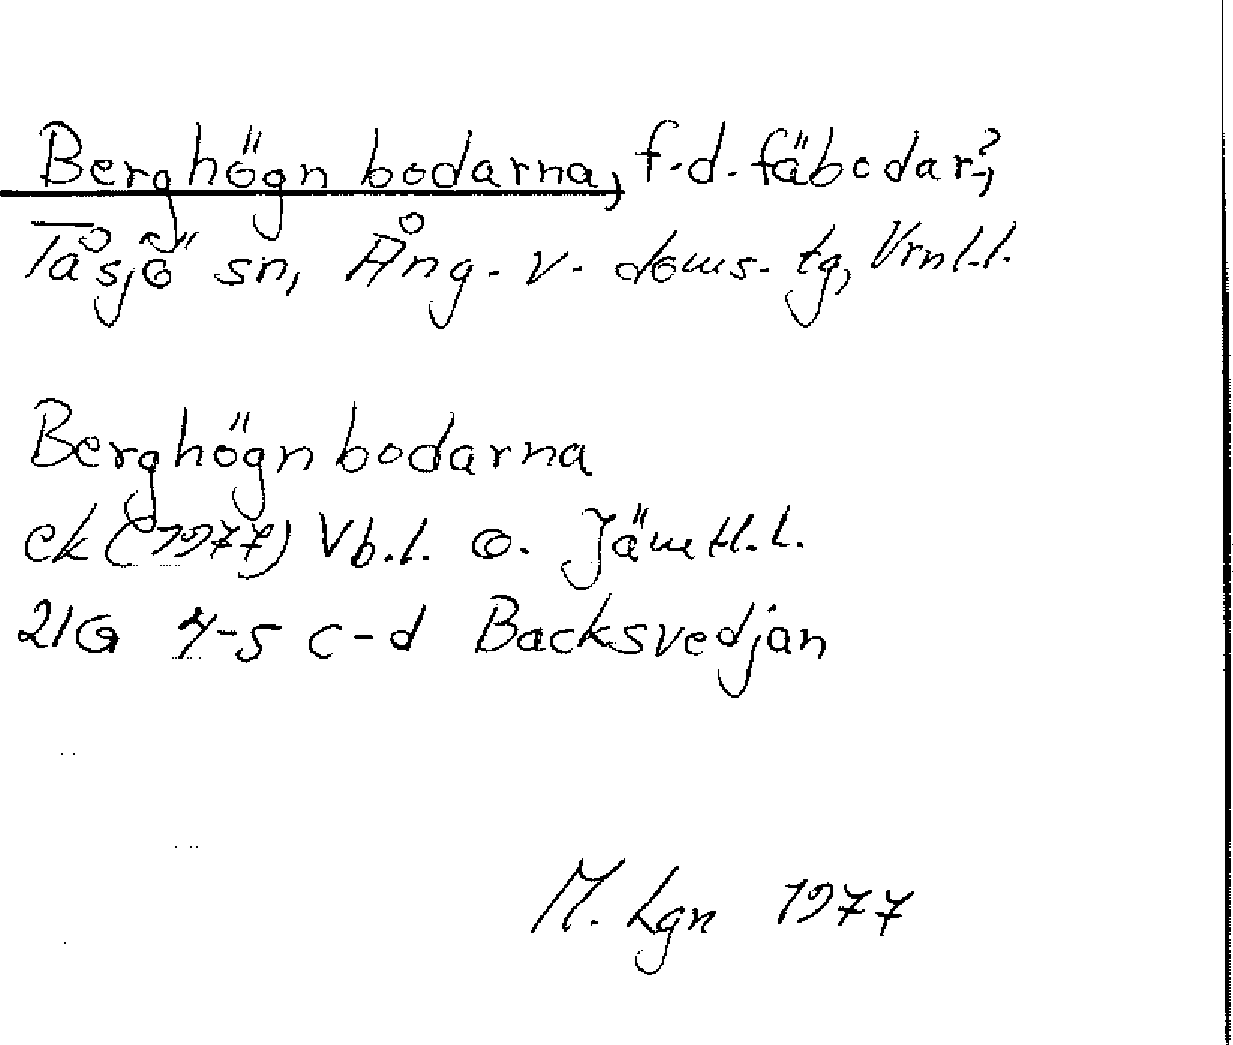 Berghögnbodarna, f.d. fäbodar?,
Tåsjö sn, Ång. v. doms. tg, Vrnl.l.
Berghögnbodarna
ek (1977) Vb.l. o. Jämtl.l.
21G 4-5 c-d Backsvedjan
M. Lgn 1977